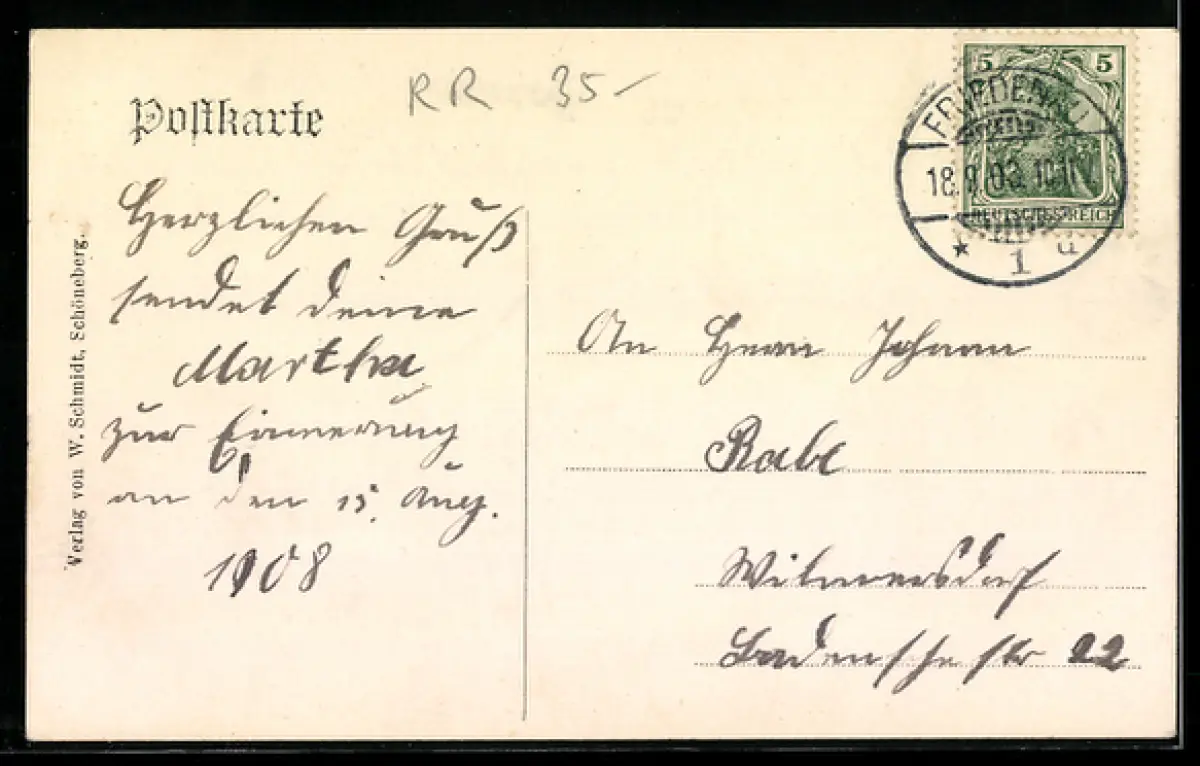 Postkarte
RR 35-
5 5
DEUTSCHES REICH
FRIEDENAU
18.9.08.
* 1 u
Herzlichen Gruß
sendet deine
Martha
zur Erinnerung
an den 15. Aug.
1908
An Herrn Johann
Rabe
Wilmersdorf
Badensche str 22
Verlag von W. Schmidt, Schöneberg.